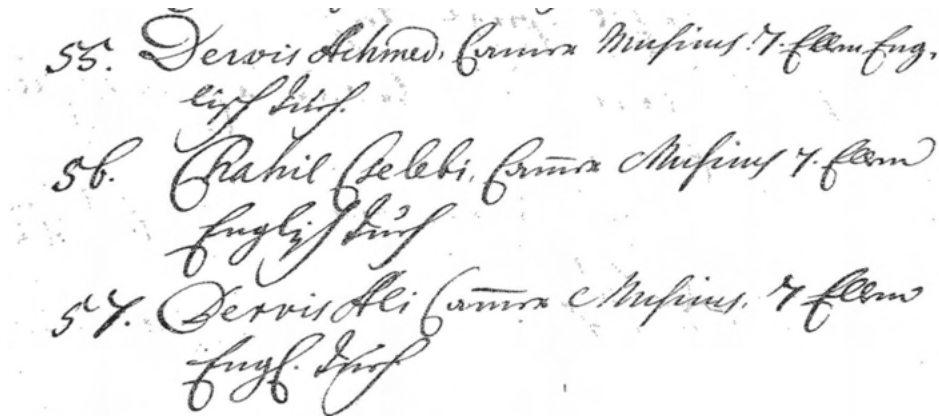 55. Dervis Achmed, Cammer Musicus 7. Ellen Eng,
lisch tuch.
56. Chalil Cselebi, Cam̅er Musicus 7. Ellen
Englisch tuch
57. Dervis Ali Cam̅er Musicus. 7 Ellen
Engl. Tuch